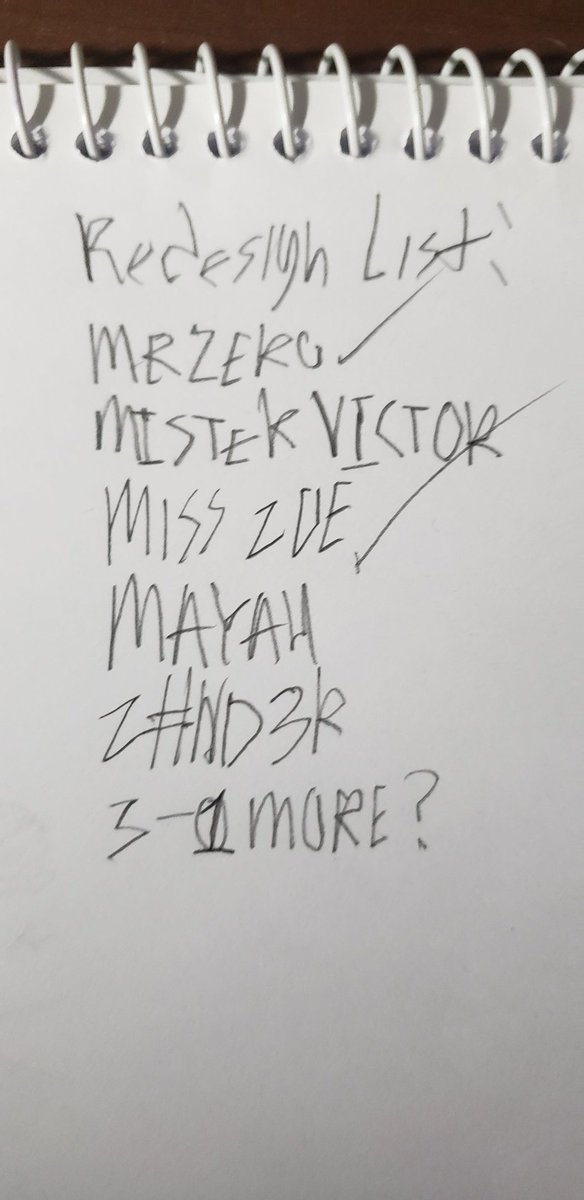 Redesign List:
MR ZERO ✓
MISTER VICTOR
MISS ZOE ✓
MAYAH
Z#ND3R
3-1 MORE?